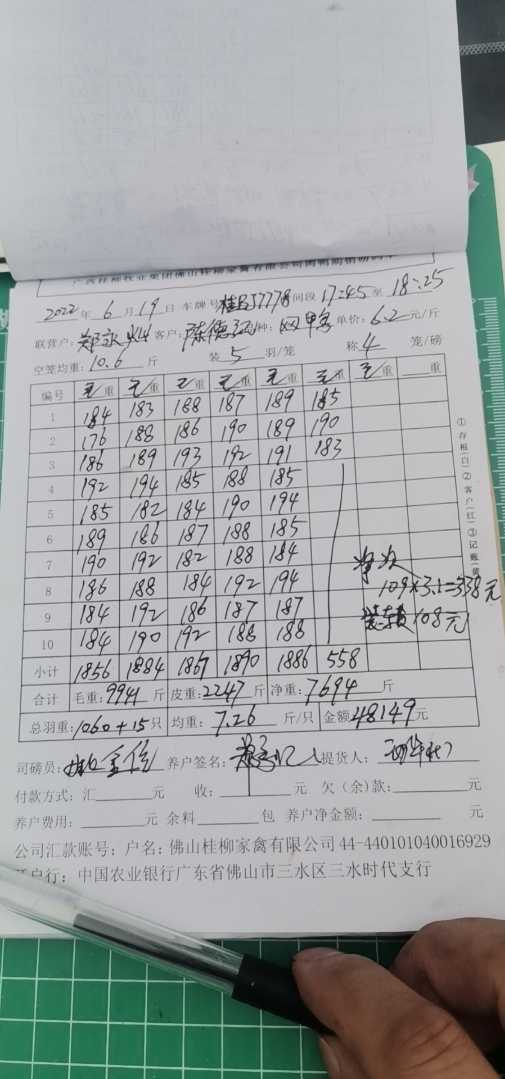 2022年6月19日 车牌号 桂BJ7778 间段 17:45 至 18:25
联营户: 客户: 陈德 种: 单价: 6.2元/斤
空笼均重: 10.6 斤 装 5 羽/笼 称 4 笼/磅
编号 毛重 毛重 毛重 毛重 毛重 毛重 毛重 重
1 184 183 188 187 189 185
2 176 188 186 190 189 190
3 186 189 193 192 191 183
4 192 194 185 188 185
5 185 182 184 190 194
6 189 186 187 188 185
7 190 192 182 188 184
8 186 188 184 192 194
109×3.1=338元
9 184 192 186 187 187
108元
10 184 190 192 188 188
小计 1856 1884 1867 1890 1886 558
合计 毛重: 9941 斤 皮重: 2247 斤 净重: 7694 斤
总羽重: 1060+15只 均重: 7.26 斤/只 金额 48149元
司磅员: 养户签名: 提货人:
付款方式: 汇 元 收: 元 欠(余)款: 元
养户费用: 元 余料 包 养户净金额: 元
公司汇款账号: 户名: 佛山桂柳家禽有限公司 44-440101040016929
户行: 中国农业银行广东省佛山市三水区三水时代支行
①存根(白)②客户(红)③记账(黄